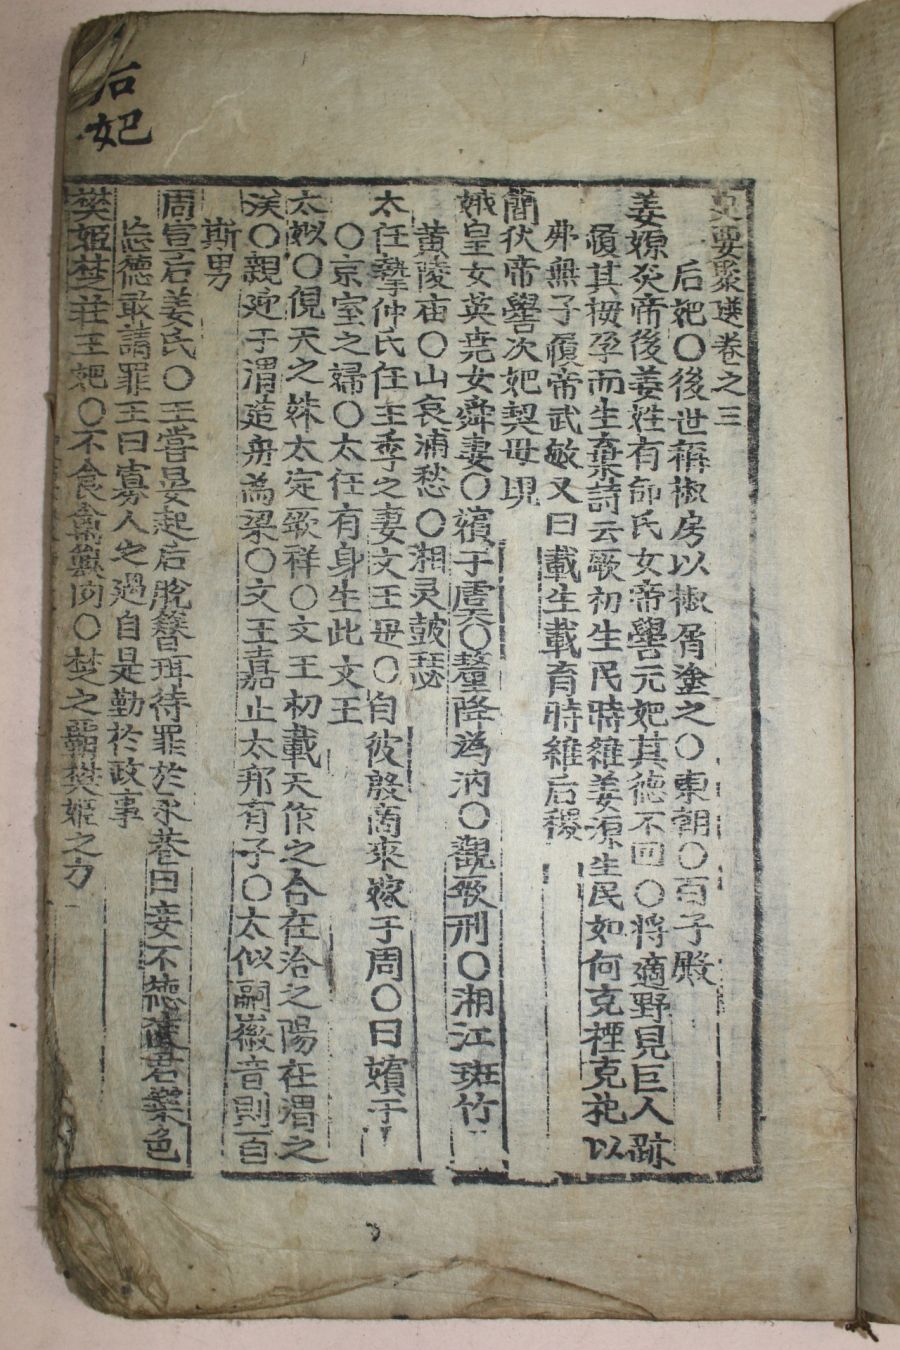 后妃
史要聚選卷之三
后妃〇後世稱椒房以椒屑塗之〇東朝〇百子殿
姜嫄炎帝後姜姓有邰氏女帝嚳元妃其德不回〇將適野見巨人跡
履其拇孕而生棄詩云厥初生民時維姜嫄生民如何克禋克祀以
弗無子履帝武敏又曰載生載育時維后稷
簡狄帝嚳次妃契母現
娥皇女英堯女舜妻〇嬪于虞天〇釐降溈汭〇觀厥刑〇湘江斑竹
黃陵庙〇山哀浦愁〇湘灵皷瑟
太任摯仲氏任王季之妻文王母〇自彼殷商來嫁于周〇曰嬪于
〇京室之婦〇太任有身生此文王
太姒〇俔天之妹太定厥祥〇文王初載天作之合在洽之陽在渭之
涘〇親迎于渭造舟為梁〇文王嘉止太邦有子〇太似嗣徽音則百
斯男
周宣后姜氏〇王嘗晏起后脫簪珥待罪於永巷曰妾不德使君樂色
忘德敢請罪王曰寡人之過自是勤於政事
樊姬楚莊王妃〇不食禽獸肉〇楚之霸樊姬之力